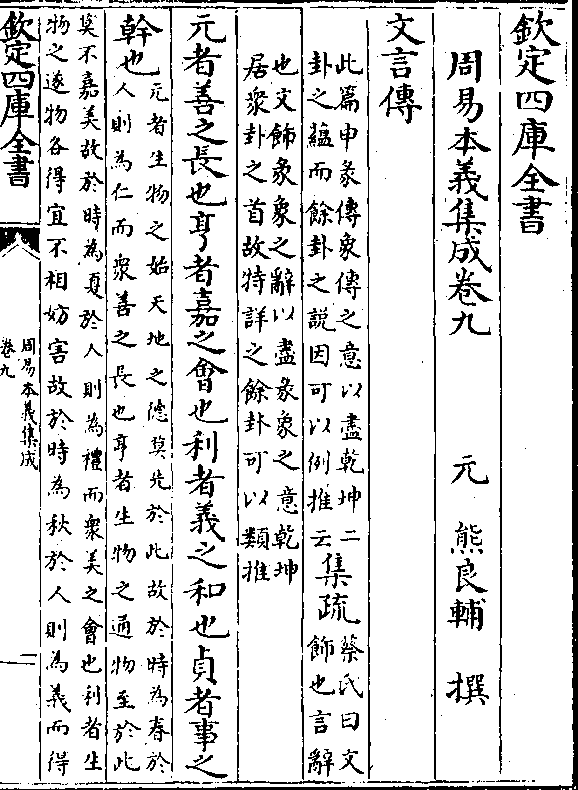 欽定四庫全書
周易本義集成卷九
元 熊良輔 撰
文言傳
此篇申彖傳象傳之意以盡乾坤二
卦之蘊而餘卦之說因可以例推云
集疏
蔡氏曰文
飾也言辭
也文飾彖象之辭以盡彖象之意乾坤
居衆卦之首故特詳之餘卦可以類推
元者善之長也亨者嘉之會也利者義之和也貞者事之
幹也
元者生物之始天地之徳莫先於此故於時為春於
人則為仁而衆善之長也亨者生物之通物至於此
莫不嘉美故於時為夏於人則為禮而衆美之會也利者生
物之遂物各得宜不相妨害故於時為秋於人則為義而得
欽定四庫全書
周易本義集成
卷九
一